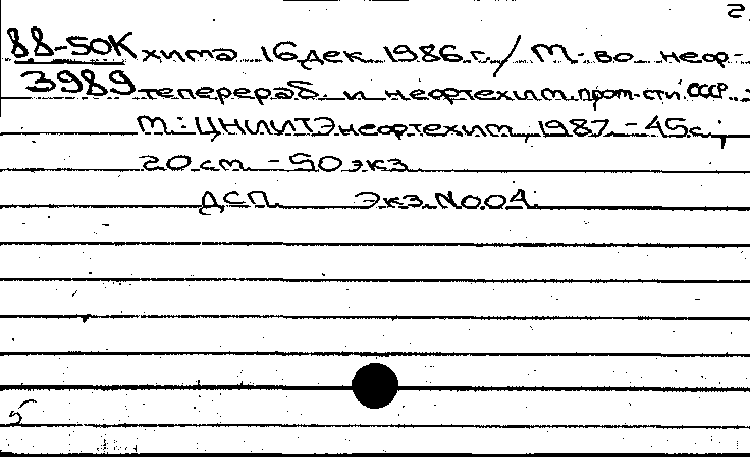 2
88-50К хима 16 дек. 1986 г. / М-во неф-
3989 теперераб. и нефтехим. пром-сти СССР. -
М.: ЦНИИТЭнефтехим, 1987. - 45 с.;
20 см. - 50 экз.
ДСП. Экз. №04.
5